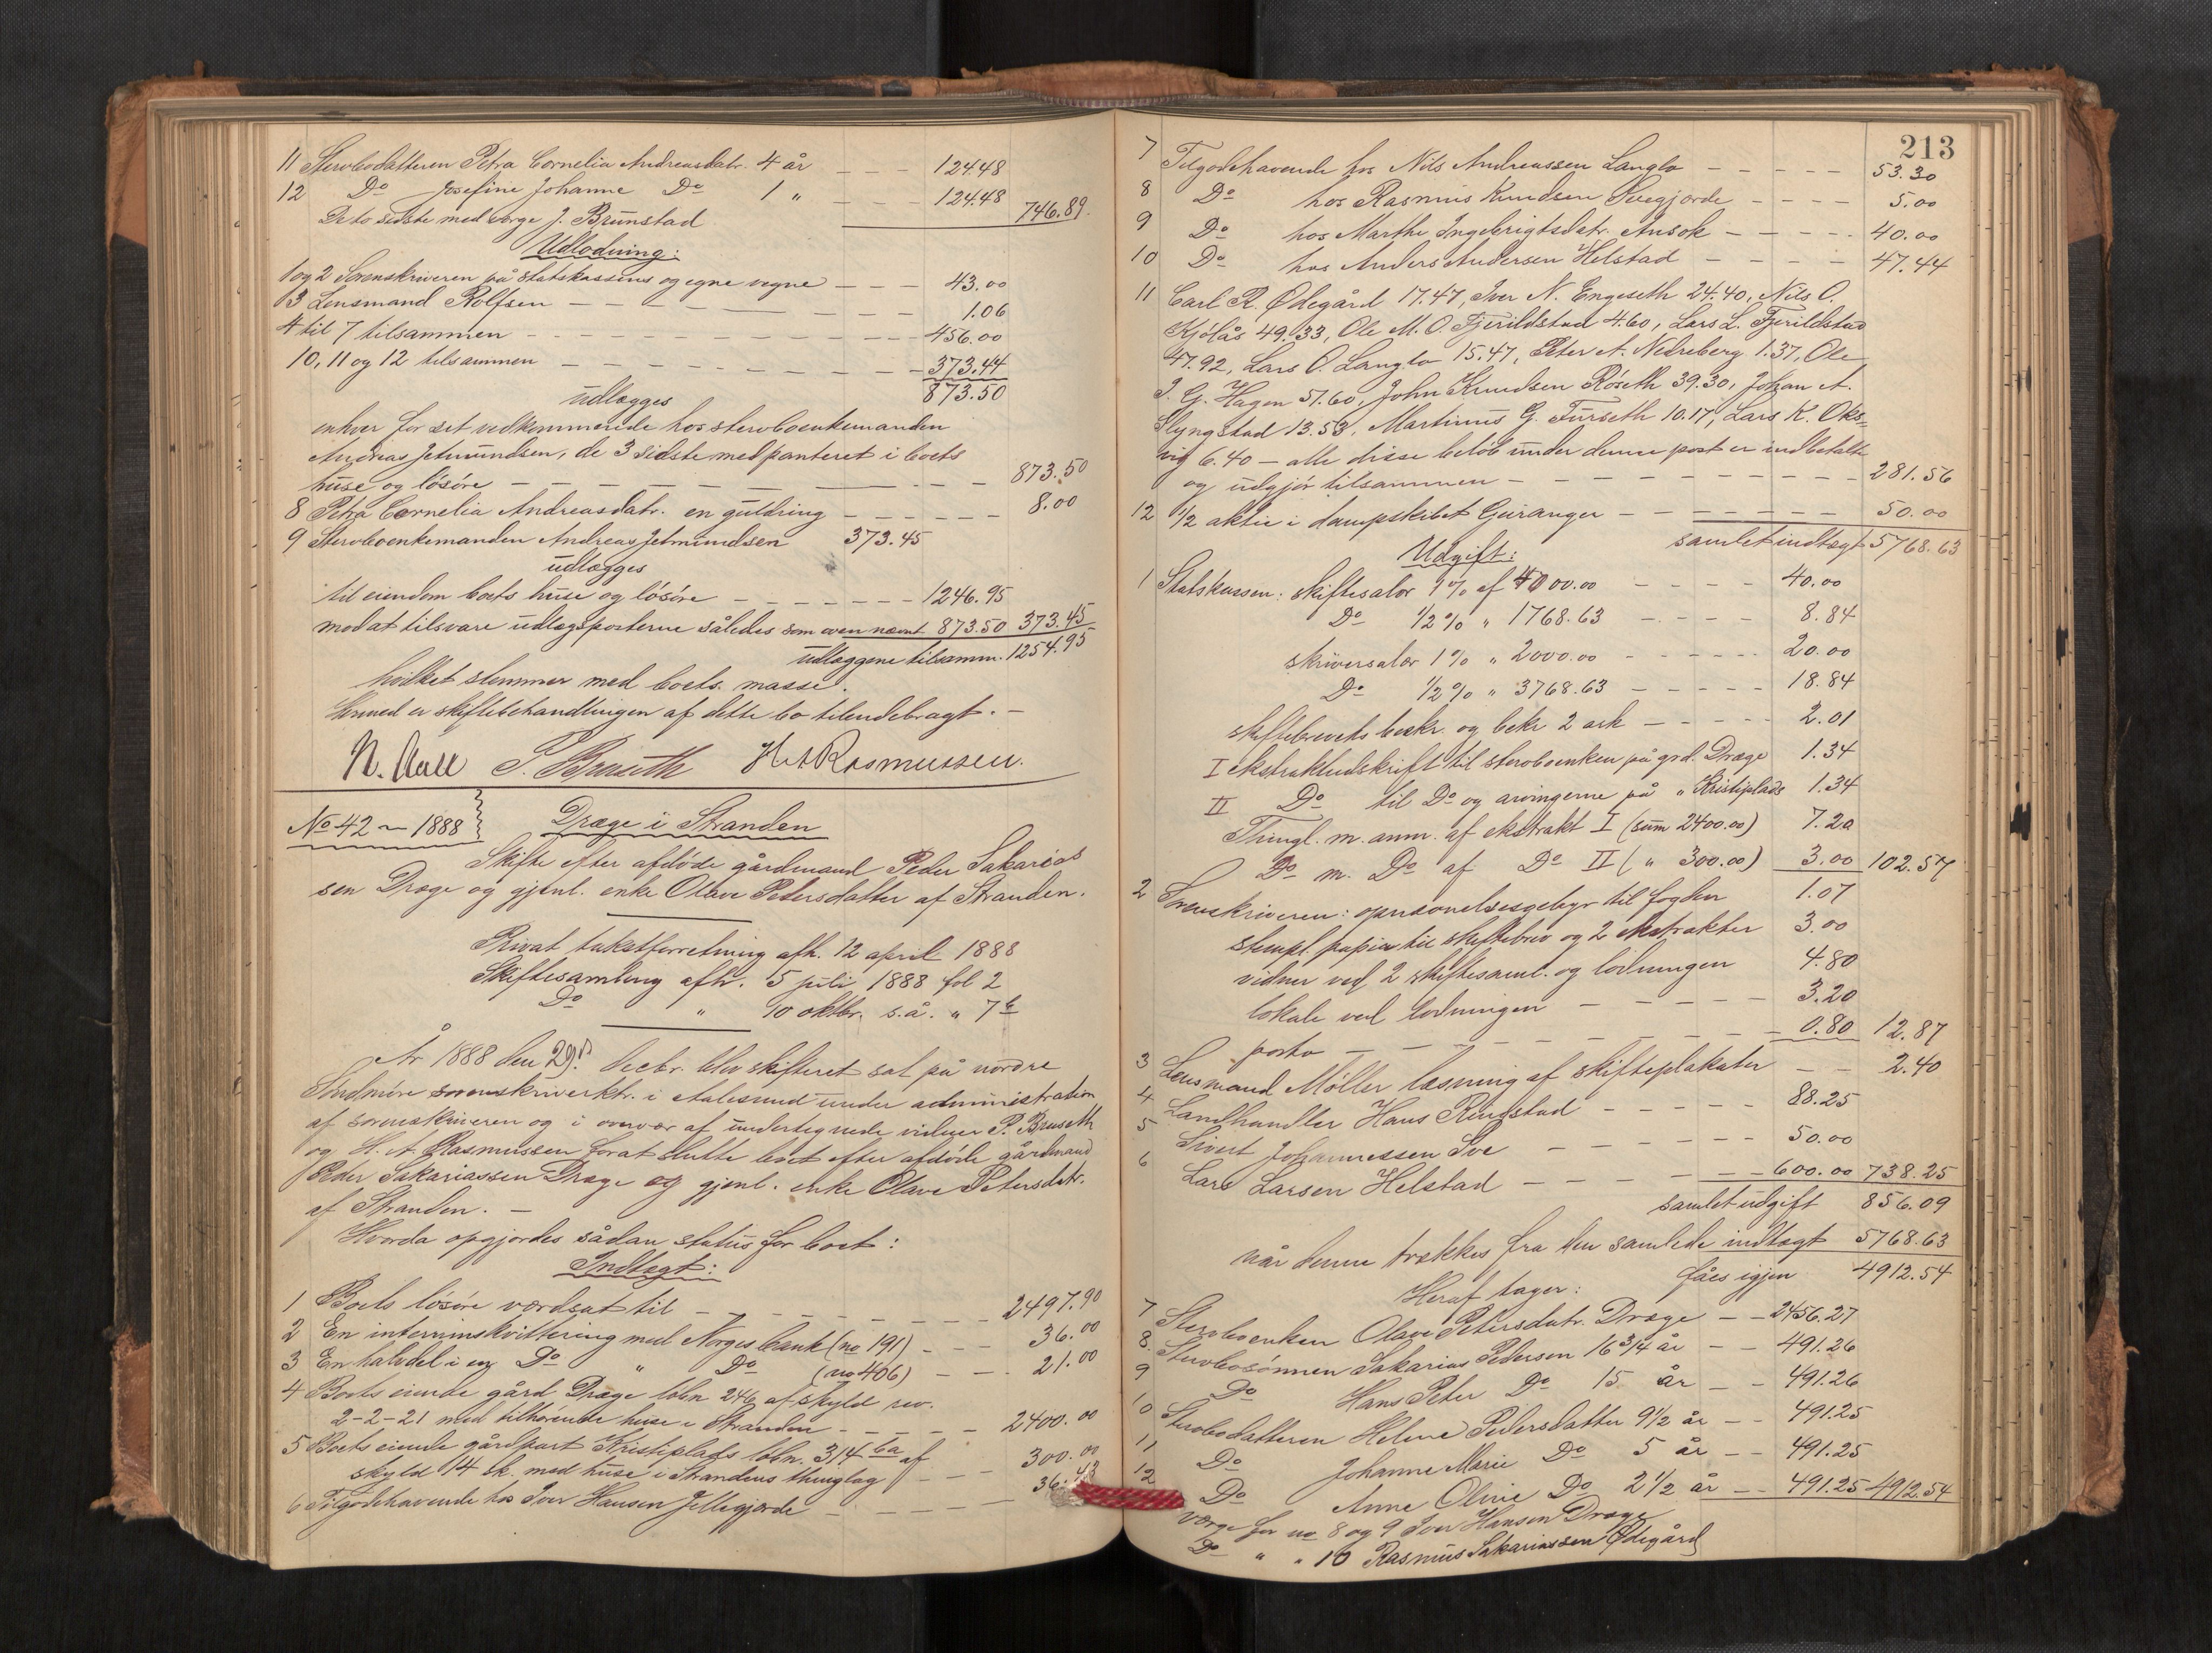 11 Stervbodatteren Petra Cornelia Andreasdatr. 4 år — — — 124.48
12 Do Josefine Johanne Do 1 " — — — 124.48 746.89.
De to sidste med verge J. Brunstad
Udlodning:
1 og 2 Sorenskriveren på statskassens og egne vegne — — — 43.00
3 Lensmand Rolfsen — — — 1.06
4 til 7 tilsammen — — — 456.00
10, 11 og 12 tilsammen — — — 373.44
873.50
udlægges
enhver for sit vedkommende hos stervboenkemanden
Andreas Jetmundsen, de 3 sidste med panteret i boets
huse og løsøre — — — 873.50
8 Petra Cornelia Andreasdatr. en guldring — — — 8.00
9 Stervboenkemanden Andreas Jetmundsen 373.45
udlægges
til eiendom boets huse og løsøre — — — 1246.95
mod at tilsvare udlægsposterne således som oven nævnt 873.50 373.45
udlæggene tilsamm. 1254.95
hvilket stemmer med boets masse.
Hermed er skiftebehandlingen af dette bo tilendebragt. —
N. Aall P. Bruseth H A Rasmussen.
No 42 — 1888
Dræge i Stranden
Skifte efter afdøde gårdmand Peder Sakarias
sen Dræge og gjenl. enke Olave Petersdatter af Stranden.
Privat takstforretning afh. 12 april 1888
Skiftesamling afh. 5 juli 1888 fol 2
Do " 10 oktbr. s.å. " 7 b
År 1888 den 29d. decbr. blev skifteret sat på nordre
Søndmøre sorenskriverktr. i Aalesund under administration
af sorenskriveren og i overvær af undertegnede vidner P. Bruseth
og H. A. Rasmussen for at slutte boet efter afdøde gårdmand
Peder Sakariassen Dræge og gjenl. enke Olave Petersdtr.
af Stranden. —
Hvorda opgjordes sådan status for boet:
Indtægt:
1 Boets løsøre værdsat til — — — 2497.90
2 En interimskvittering med Norges bank (no 191) — — — 36.00
3 En halvdel i en Do " Do (no 406) — — — 21.00
4 Boets eiende gård Dræge løbn 246 af skyld rev.
2-2-21 med tilhørende huse i Stranden — — — 2400.00
5 Boets eiende gårdpart Kristiplads løbn. 314 6a af
skyld 14 sk. med huse i Strandens thinglag — — — 300.00
6 Tilgodehavende hos Iver Hansen Jellegjerde — — — 36.43
213
7 Tilgodehavende hos Nils Andreassen Langlo — — — 53.30
8 Do hos Rasmus Knudsen Svegjørde — — — 5.00
9 Do hos Marthe Ingebrigtsdatr. Ansok — — — 40.00
10 Do hos Anders Andersen Helstad — — — 47.44
11 Carl R. Ødegård 17.47, Iver N. Engeseth 24.40, Nils O.
Kjølås 49.33, Ole M. O. Fjerildstad 4.60, Lars L. Fjerildstad
47.92, Lars O. Langlo 15.47, Peter A. Nedreberg 1.37, Ole
I. G. Hagen 51.60, John Knudsen Røseth 39.30, Johan A.
Slyngstad 13.53, Martinus G. Furseth 10.17, Lars K. Oks=
vig 6.40 — alle disse beløb under denne post er indbetalte
og udgjør tilsammen — — — 281.56
12 1/2 aktie i dampskibet Geiranger — — — 50.00
samlet indtægt 5768.63
Udgift:
1 Statskassen: skiftesalær 1% af 4000.00 — — — 40.00
Do 1/2% " 1768.63 — — — 8.84
skriversalær 1% " 2000.00 — — — 20.00
Do 1/2% " 3768.63 — — — 18.84
skiftebrevets beskr. og bekr 2 ark — — — 2.01
I ekstraktudskrift til stervboenken på grd. Dræge 1.34
II Do til Do og arvingerne på " Kristiplads 1.34
Thingl. m. anm. af ekstrakt I (sum 2400.00) 7.20
Do m. Do af Do II ( " 300.00) 3.00 102.57
2 Sorenskriveren: opnævnelsesgebyr til fogden 1.07
stempl. papir til skiftebrev og 2 ekstrakter 3.00
vidner ved 2 skiftesaml. og lodningen 4.80
lokale ved lodningen — — — 3.20
porto — — — 0.80 12.87
3 Lensmand Møller læsning af skifteplakater — — 2.40
4 Landhandler Hans Ringstad — — — 88.25
5 Sivert Johannessen Sve — — — 50.00
6 Lars Larsen Helstad — — — 600.00 738.25
samlet udgift 856.09
når denne trækkes fra den samlede indtægt 5768.63
fåes igjen 4912.54
Heraf tager:
7 Stervboenken Olave Petersdatr. Dræge — — 2456.27
8. Stervbosønnen Sakarias Pedersen 16 3/4 år — — 491.26
9 Do Hans Peter Do 15 år — — 491.26
10 Stervbodatteren Helene Pedersdatter 9 1/2 år — — 491.25
11 Do Johanne Marie Do 5 år — — 491.25
12 Do Anne Oline Do 2 1/2 år — — 491.25 4912.54
Værge for no 8 og 9 Iver Hansen Dræge
Do " " 10 Rasmus Sakariassen Ødegård